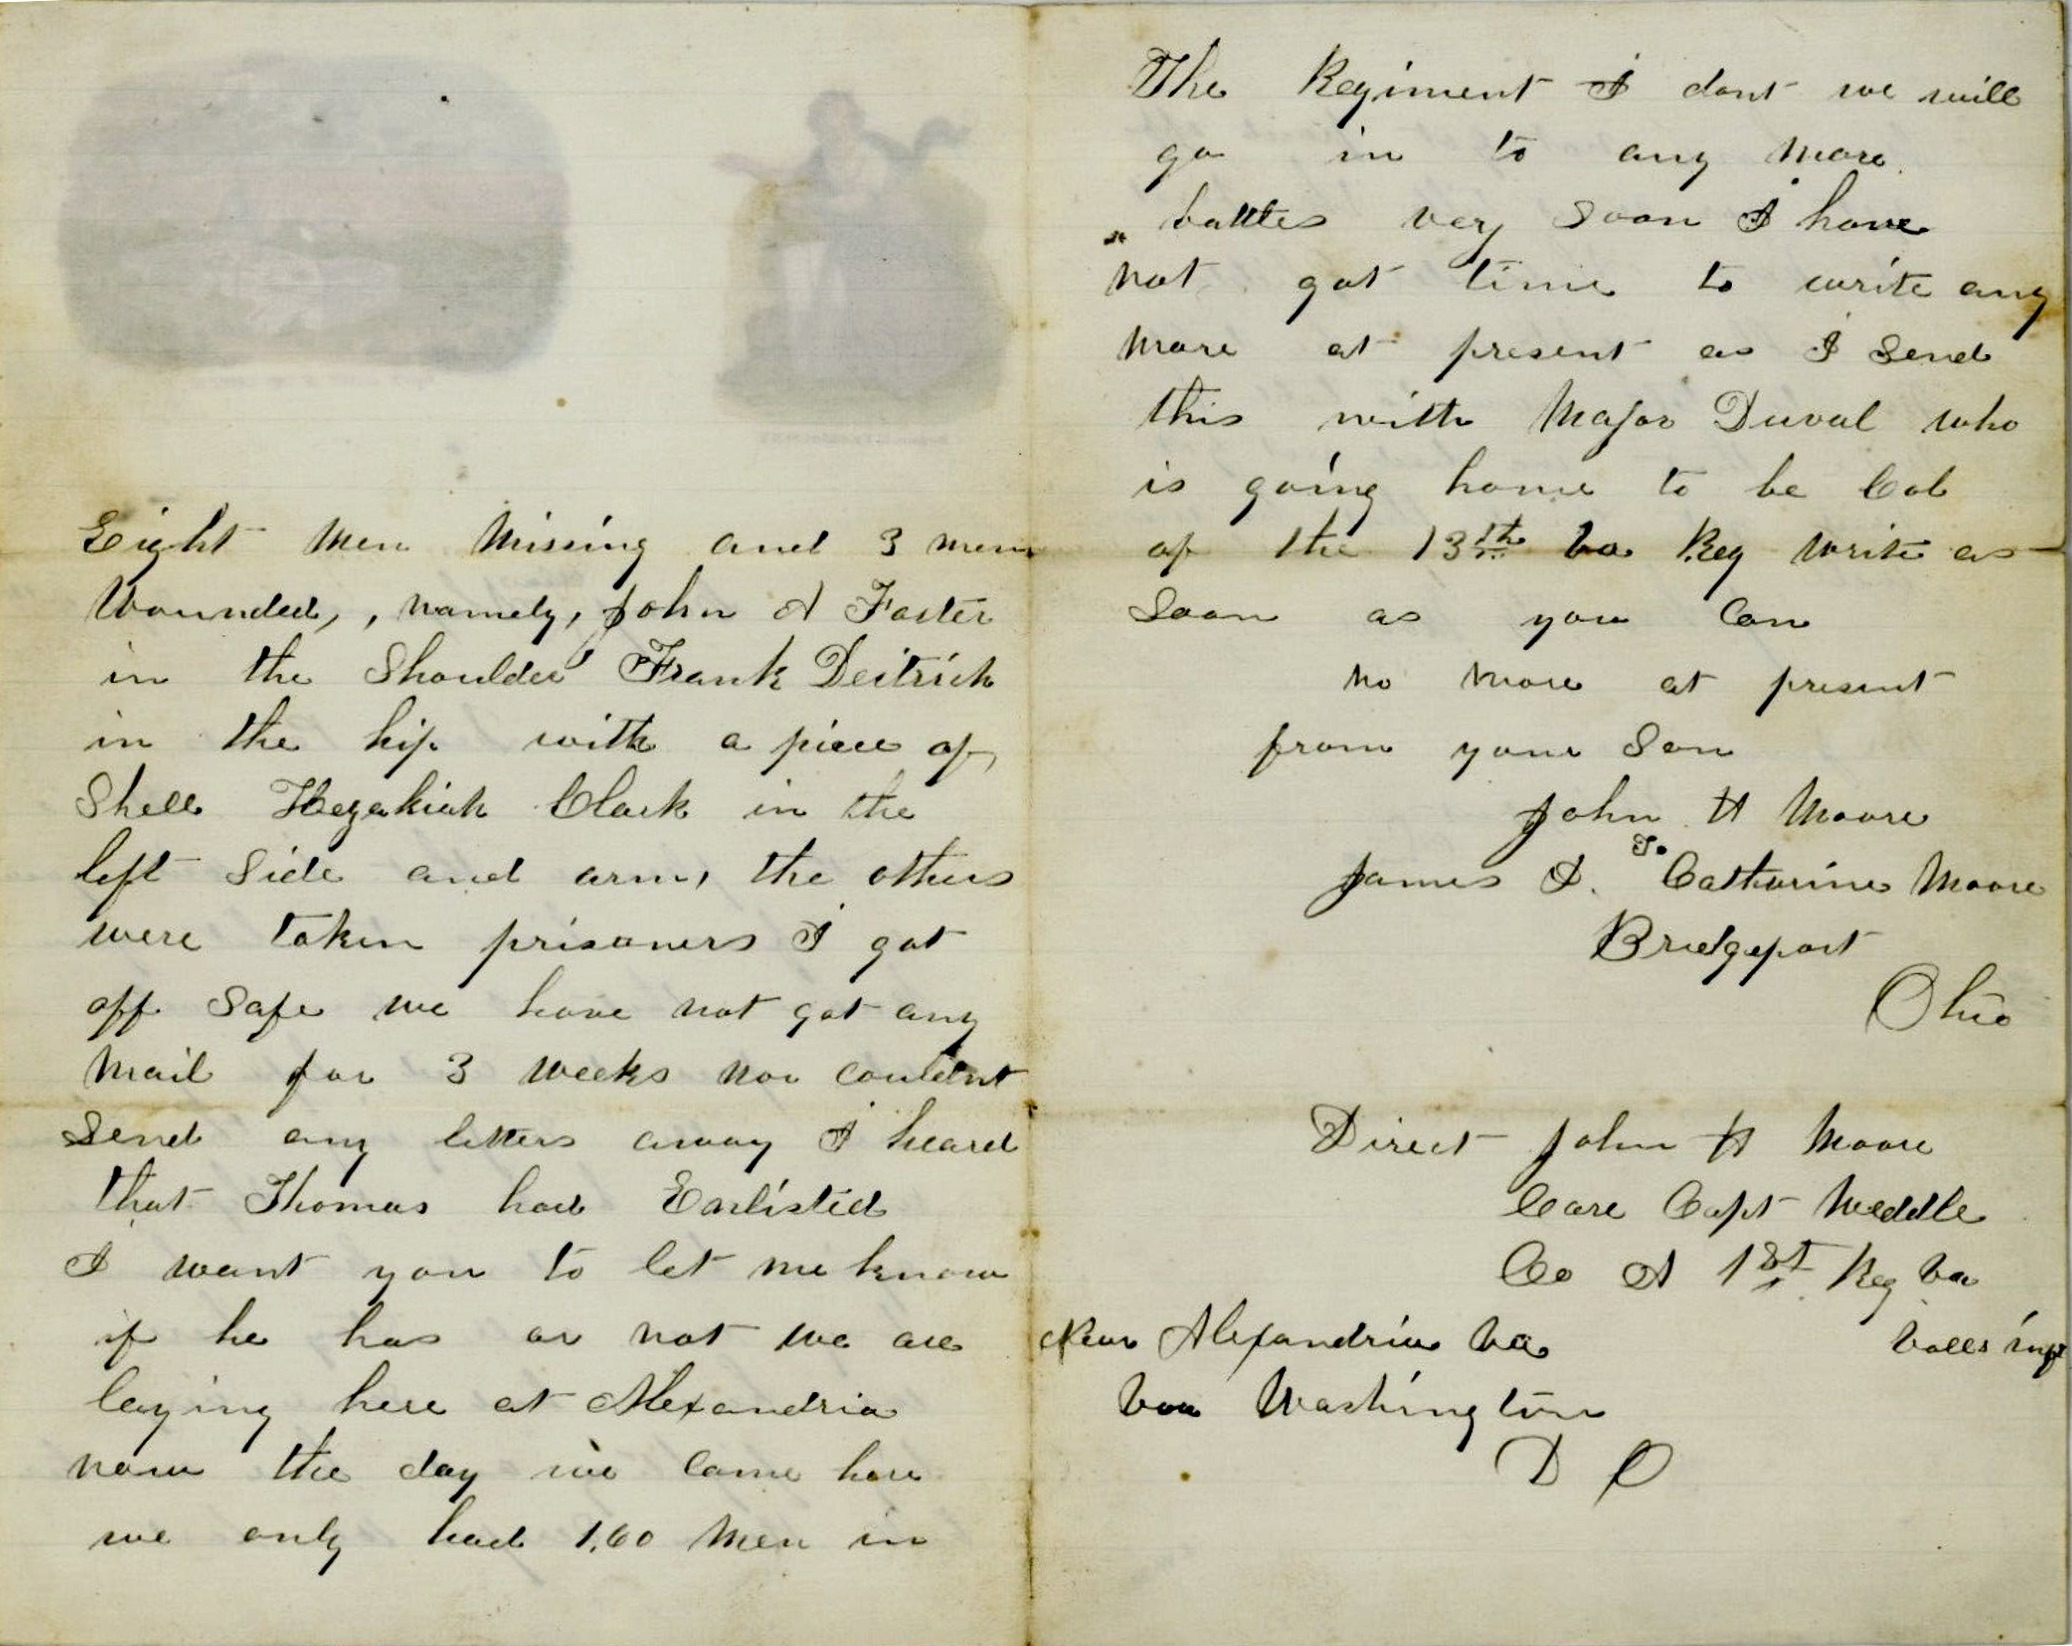 Eight Men Missing and 3 men
Wounded, , namely, John A Foster
in the Shoulder Frank Deitrich
in the hip with a piece of
Shell Hezekiah Clark in the
left Side and arm, the others
were taken prisoners I got
off Safe we have not got any
Mail for 3 weeks nor couldent
Send any letters away I heard
that Thomas had Enlisted
I want you to let me know
if he has or not we are
laying here at Alexandria
now the day we Came here
we only had 1,60 Men in
The Regiment I dont we will
go in to any More
battles very Soon I have
not got time to write any
More at present as I Send
this with Major Duval who
is going home to be Col
of the 13th Va Reg Write as
Soon as you Can
no more at present
from your Son
John H Moore
To
James D. Catharine Moore
Bridgeport
Ohio
Direct John H Moore
Care Capt Weddle
Co A 1st Reg Va
Near Alexandria Va Volls inft
Washington
D C